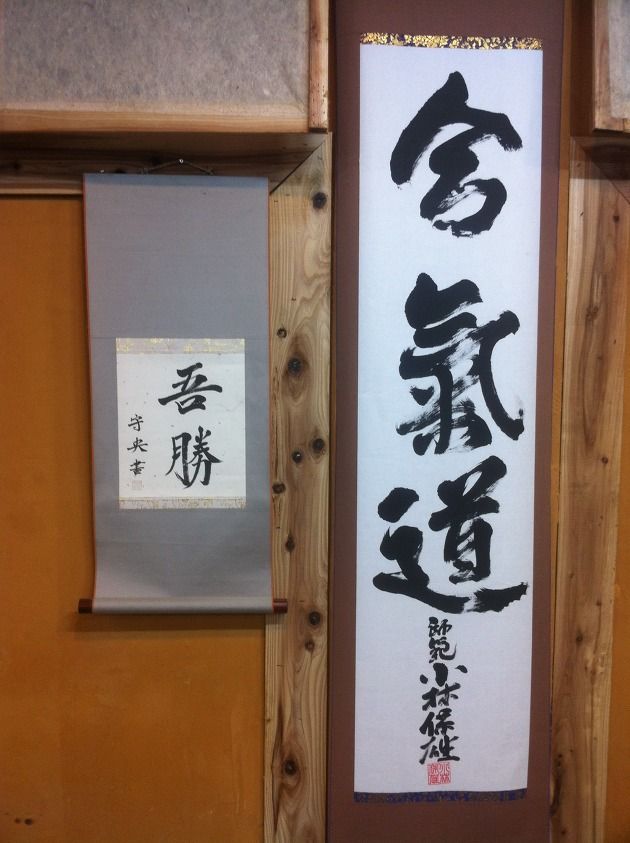 合氣道
師範 小林保雄
吾勝
守央書